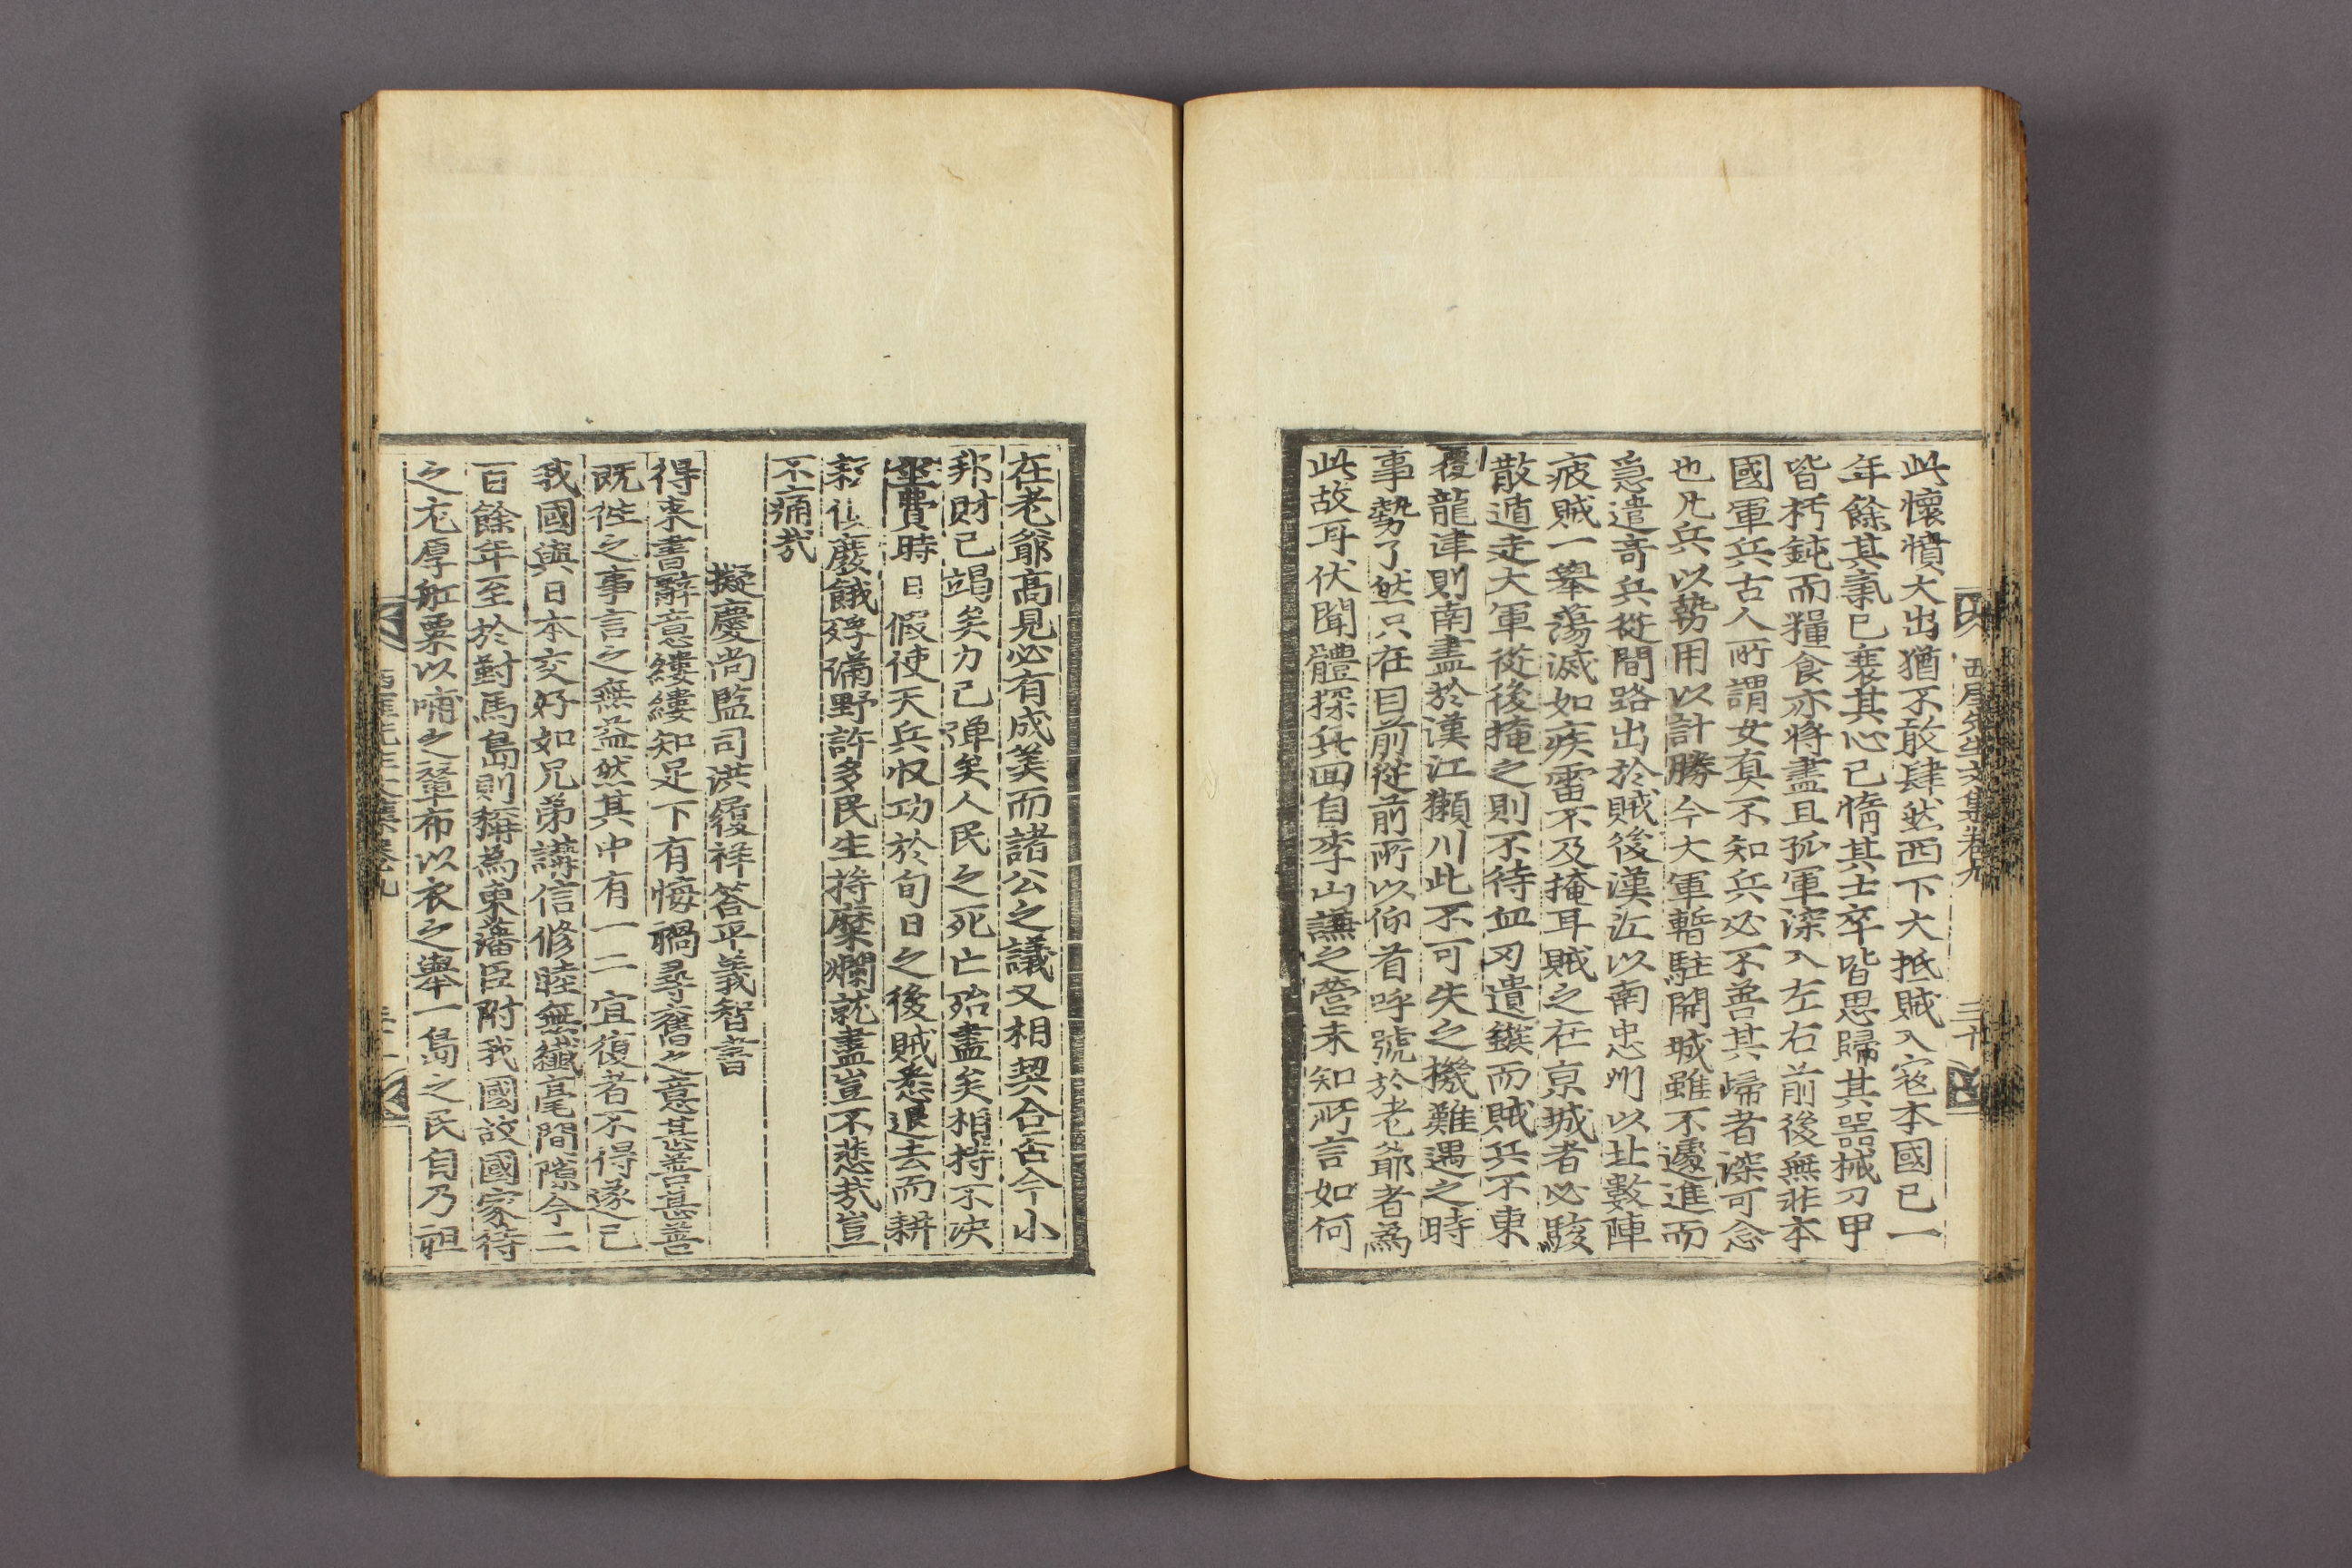 西厓先生文集卷九
三十
此懷憤大出猶不敢肆然西下大抵賊入寇本國已一
年餘其氣已衰其心已惰其士卒皆思歸其器械刀甲
皆朽鈍而糧食亦將盡且孤軍深入左右前後無非本
國軍兵古人所謂女真不知兵必不善其歸者深可念
也凡兵以勢用以計勝今大軍暫駐開城雖不遽進而
急遣奇兵從間路出於賊後漢江以南忠州以北數陣
疲賊一擧蕩滅如疾雷不及掩耳賊之在京城者必駭
散遁走大軍從後掩之則不待血刃遺鏃而賊兵不東
覆龍津則南盡於漢江獺川此不可失之機難遇之時
事勢了然只在目前從前所以仰首呼號於老爺者爲
此故耳伏聞體探兵回自李山謙之營未知所言如何
在老爺高見必有成筭而諸公之議又相契合否今小
邦財已竭矣力已殫矣人民之死亡殆盡矣相持不決
坐費時日假使天兵收功於旬日之後賊悉退去而耕
耘似廢餓殍滿野許多民生將糜爛就盡豈不悲哉豈
不痛哉
擬慶尚監司洪履祥答平義智書
得來書辭意縷縷知足下有悔禍尋舊之意甚善甚善
既徃之事言之無益然其中有一二宜復者不得遂已
我國與日本交好如兄弟講信修睦無纖毫間隙今二
百餘年至於對馬島則稱爲東藩臣附我國故國家待
之尤厚舡粟以哺之輦布以衣之擧一島之民自乃祖
西厓先生文集卷九